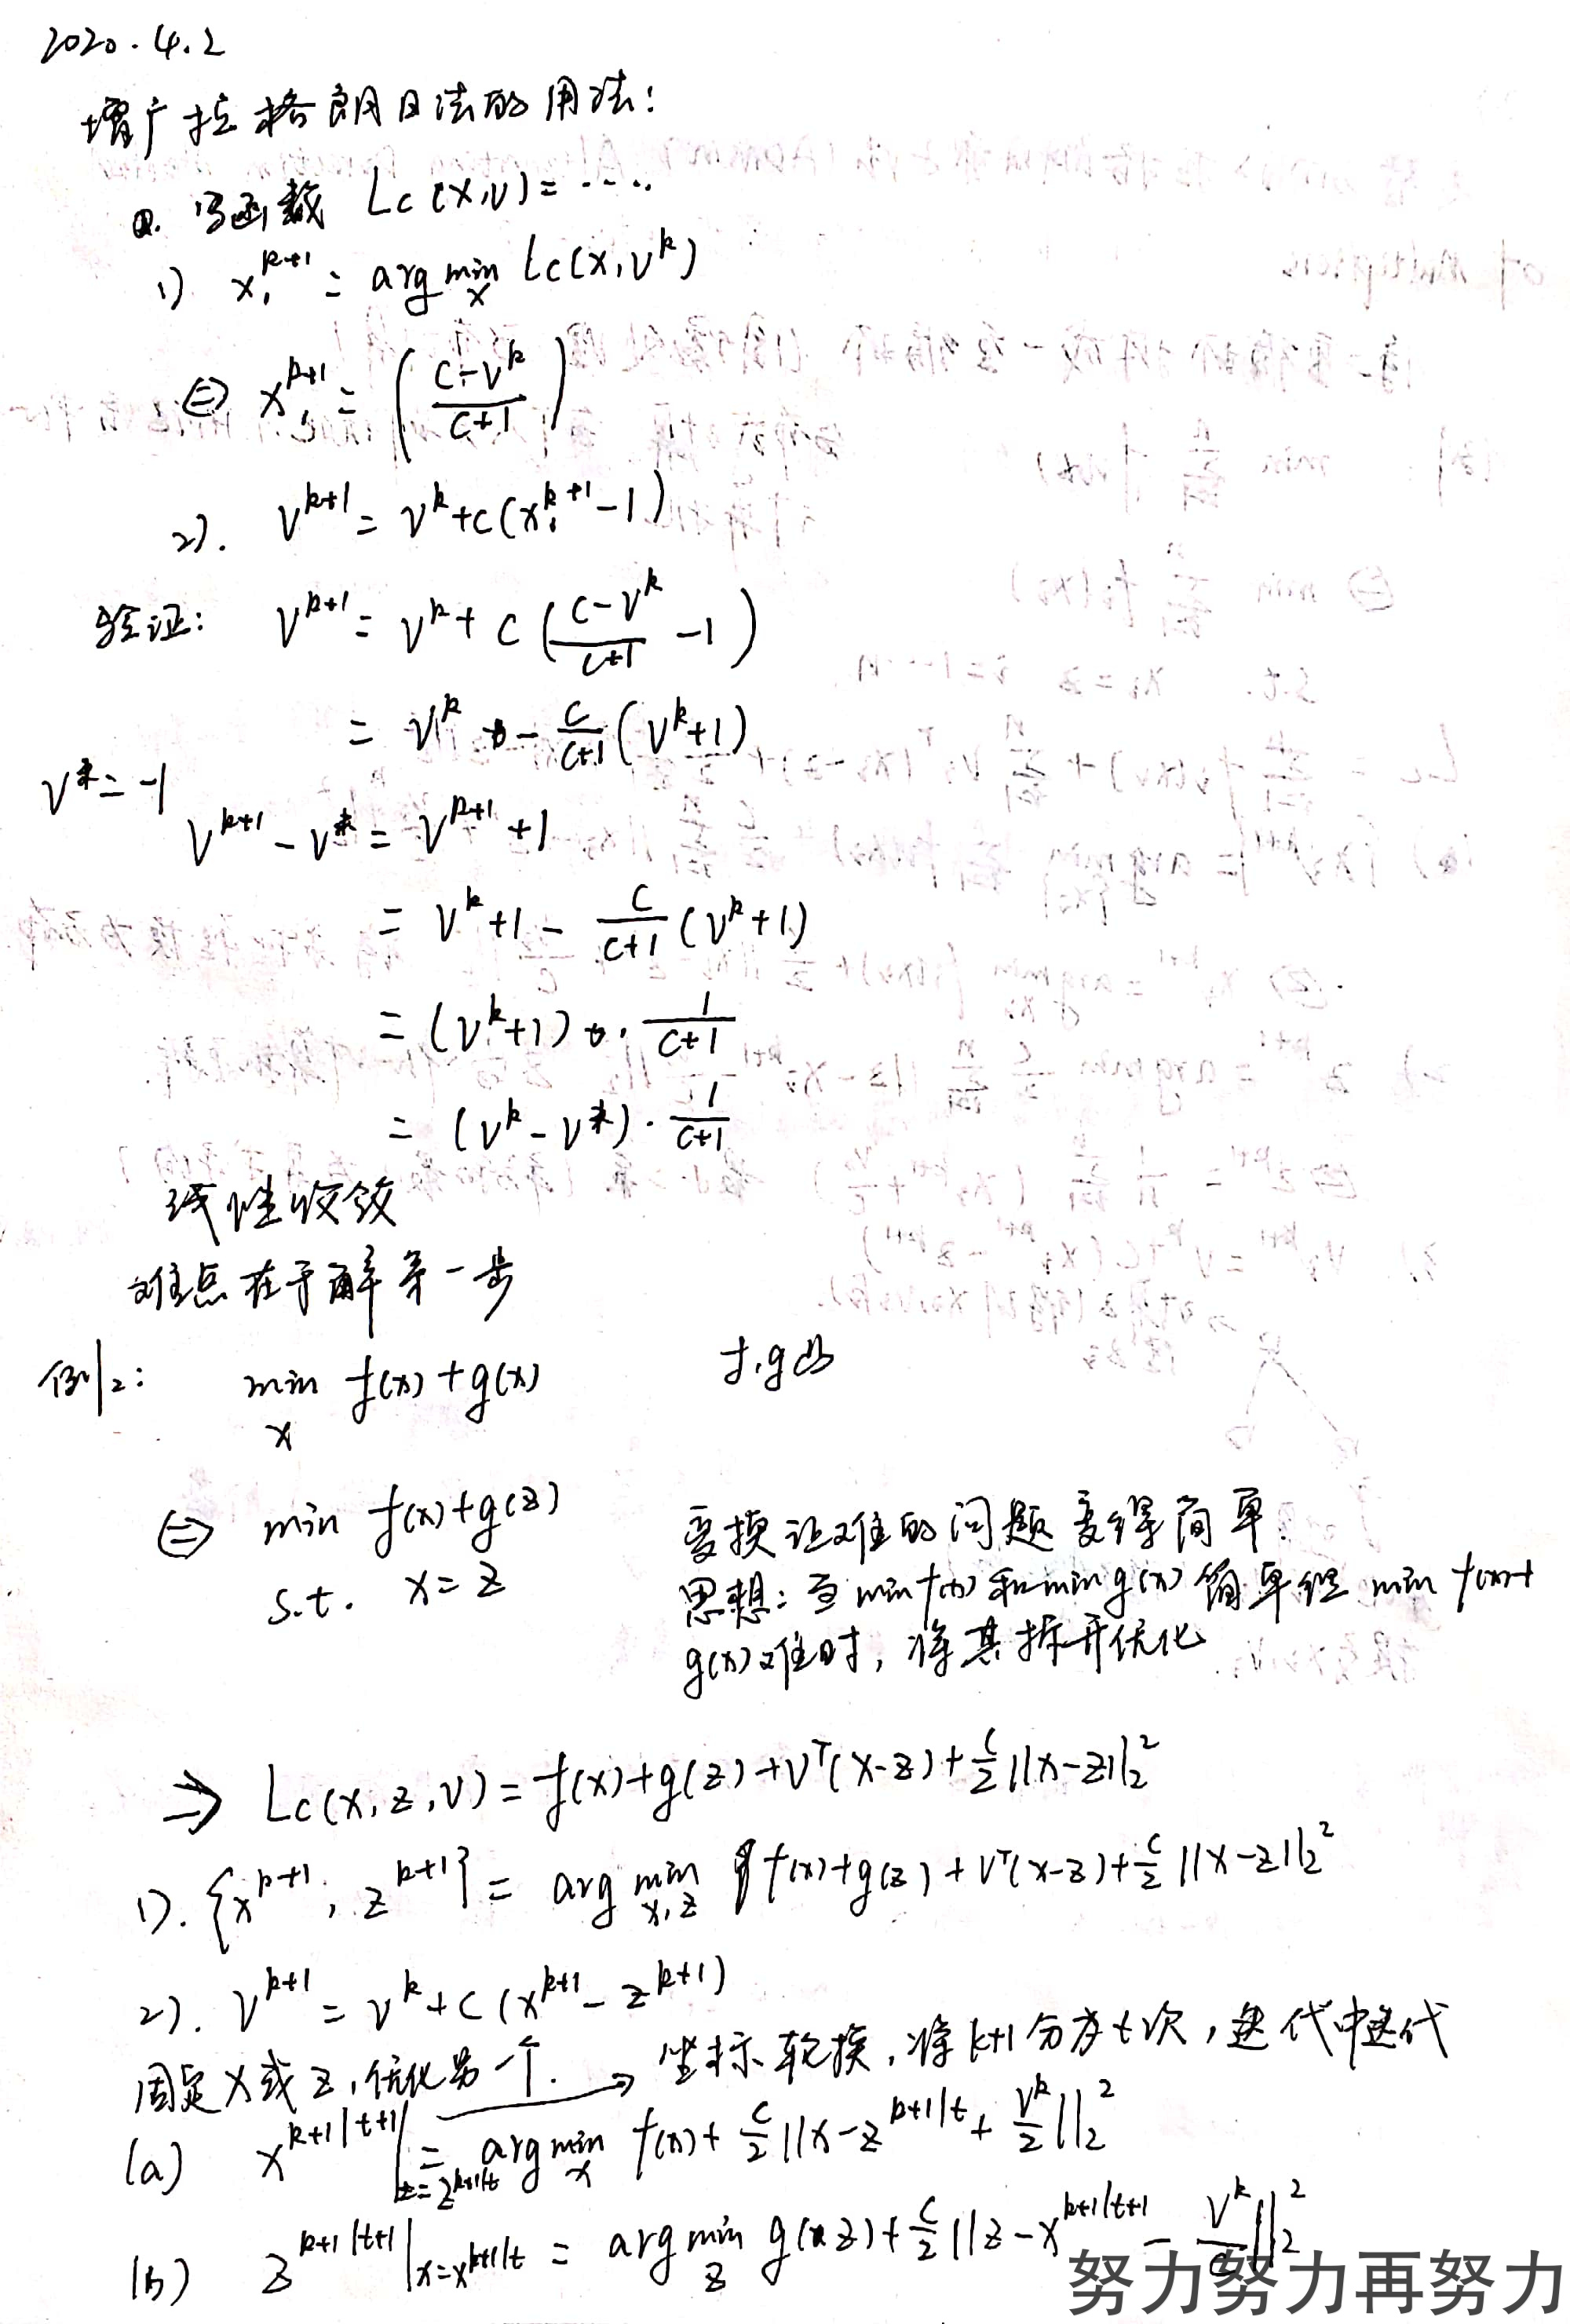 2020.4.2
增广拉格朗日法的用法:
0. 写函数 Lc(x,v)=....
1) x₁^{k+1} = arg min_x Lc(x,v^k)
⇔ x₁^{k+1} = ( (c-v^k)/(c+1) )
2). v^{k+1} = v^k+c(x₁^{k+1}-1)
验证: v^{k+1} = v^k + c ( (c-v^k)/(c+1) -1 )
= v^k - c/(c+1) (v^k+1)
v^* = -1
v^{k+1} - v^* = v^{k+1} +1
= v^k +1 - c/(c+1) (v^k+1)
= (v^k+1) · 1/(c+1)
= (v^k - v^*) · 1/(c+1)
线性收敛
难点在于解第一步
例2: min_x f(x)+g(x) f,g凸
⇔ min f(x)+g(z) 变换让难的问题变得简单
s.t. x=z 思想: 当 min f(x) 和 min g(x) 简单但 min f(x)+
g(x)难时, 将其拆开优化
⇒ Lc(x,z,v) = f(x)+g(z)+v^T(x-z)+c/2 ||x-z||₂²
1). {x^{k+1}, z^{k+1}} = arg min_{x,z} f(x)+g(z)+v^T(x-z)+c/2 ||x-z||₂²
2). v^{k+1} = v^k+c(x^{k+1}-z^{k+1})
固定x或z,优化另一个. → 坐标轮换,将k+1分为t次,迭代中迭代
(a) x^{k+1|t+1}|_{z=z^{k+1|t}} = arg min_x f(x)+ c/2 ||x-z^{k+1|t}+ v^k/2||₂²
(b) z^{k+1|t+1}|_{x=x^{k+1|t}} = arg min_z g(z)+ c/2 ||z-x^{k+1|t+1} - v^k/c||₂²
努力努力再努力